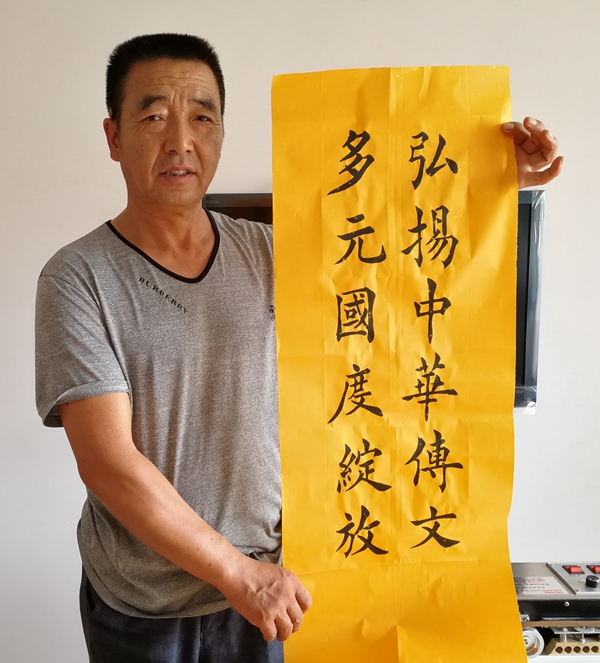 弘揚中華傳文
多元國度綻放
BURBERRY